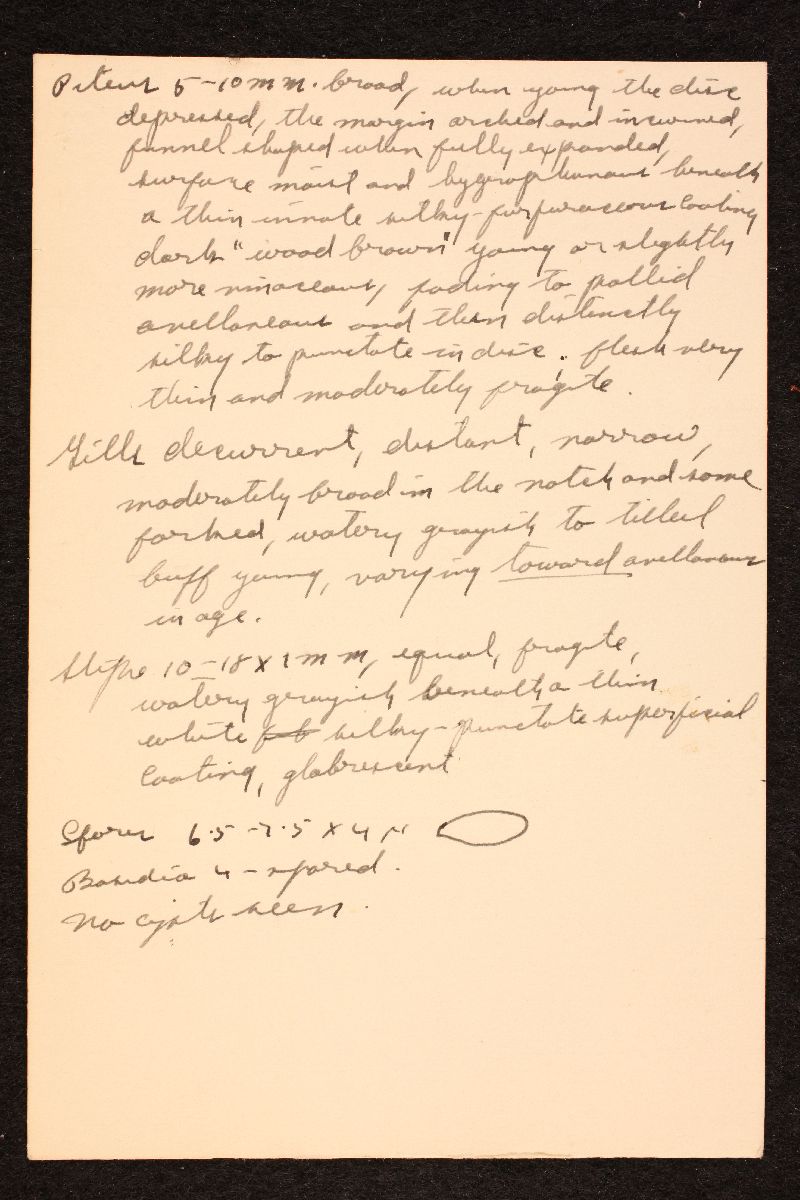 Pileus 5-10 mm. broad, when young the disc
depressed, the margin arched and incurved,
funnel shaped when fully expanded,
surface moist and hygrophanous beneath
a thin innate silky-furfuraceous coating
dark "wood brown" young or slightly
more vinaceous, fading to pallid
avellaneous and then distinctly
silky to punctate in disc. flesh very
thin and moderately fragile.
Gills decurrent, distant, narrow,
moderately broad in the notch and some
forked, watery grayish to tilleul
buff young, varying toward avellaneous
in age.
Stipe 10-18 x 1 mm, equal, fragile,
watery grayish beneath a thin
white silky-punctate superficial
coating, glabrescent
Spores 6.5-7.5 x 4 µ
Basidia 4-spored.
No cysts seen.